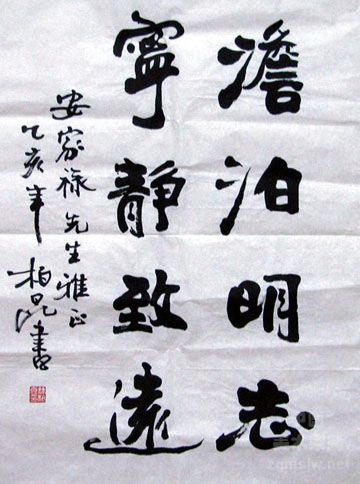 澹泊明志
寧靜致遠
安家祿先生雅正
乙亥年 柏 書